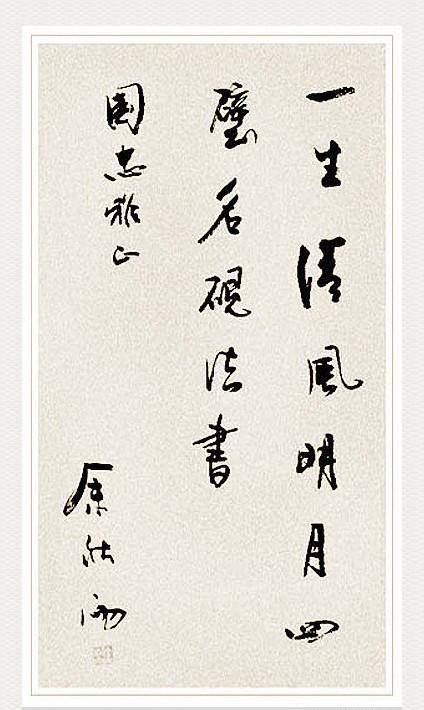 一生清風明月四
壁名硯法書
國忠雅正
余秋雨